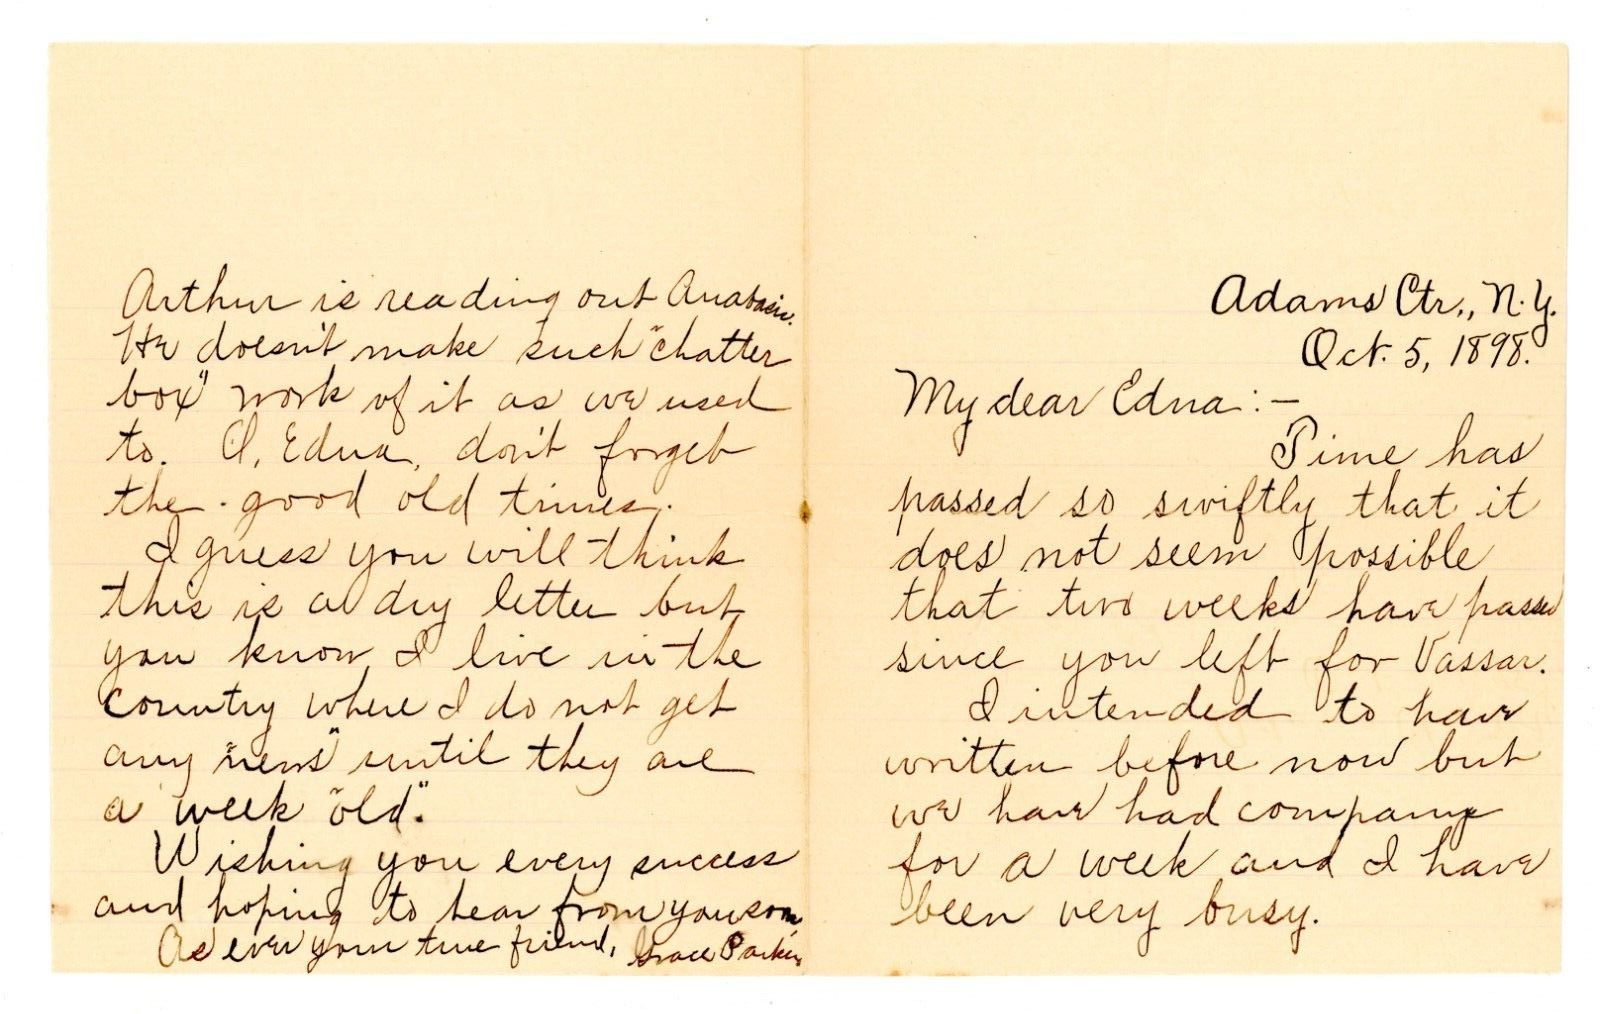 Adams Ctr., N.Y.
Oct. 5, 1898.
My dear Edna:—
Time has
passed so swiftly that it
does not seem possible
that two weeks have passed
since you left for Vassar.
I intended to have
written before now but
we have had company
for a week and I have
been very busy.
Arthur is reading out Anabasis.
He doesn't make such "chatter
box" work of it as we used
to. O, Edna, don't forget
the good old times.
I guess you will think
this is a dry letter but
you know I live in the
country where I do not get
any "news" until they are
a week "old".
Wishing you every success
and hoping to hear from you soon
As ever your true friend, Grace Parkin